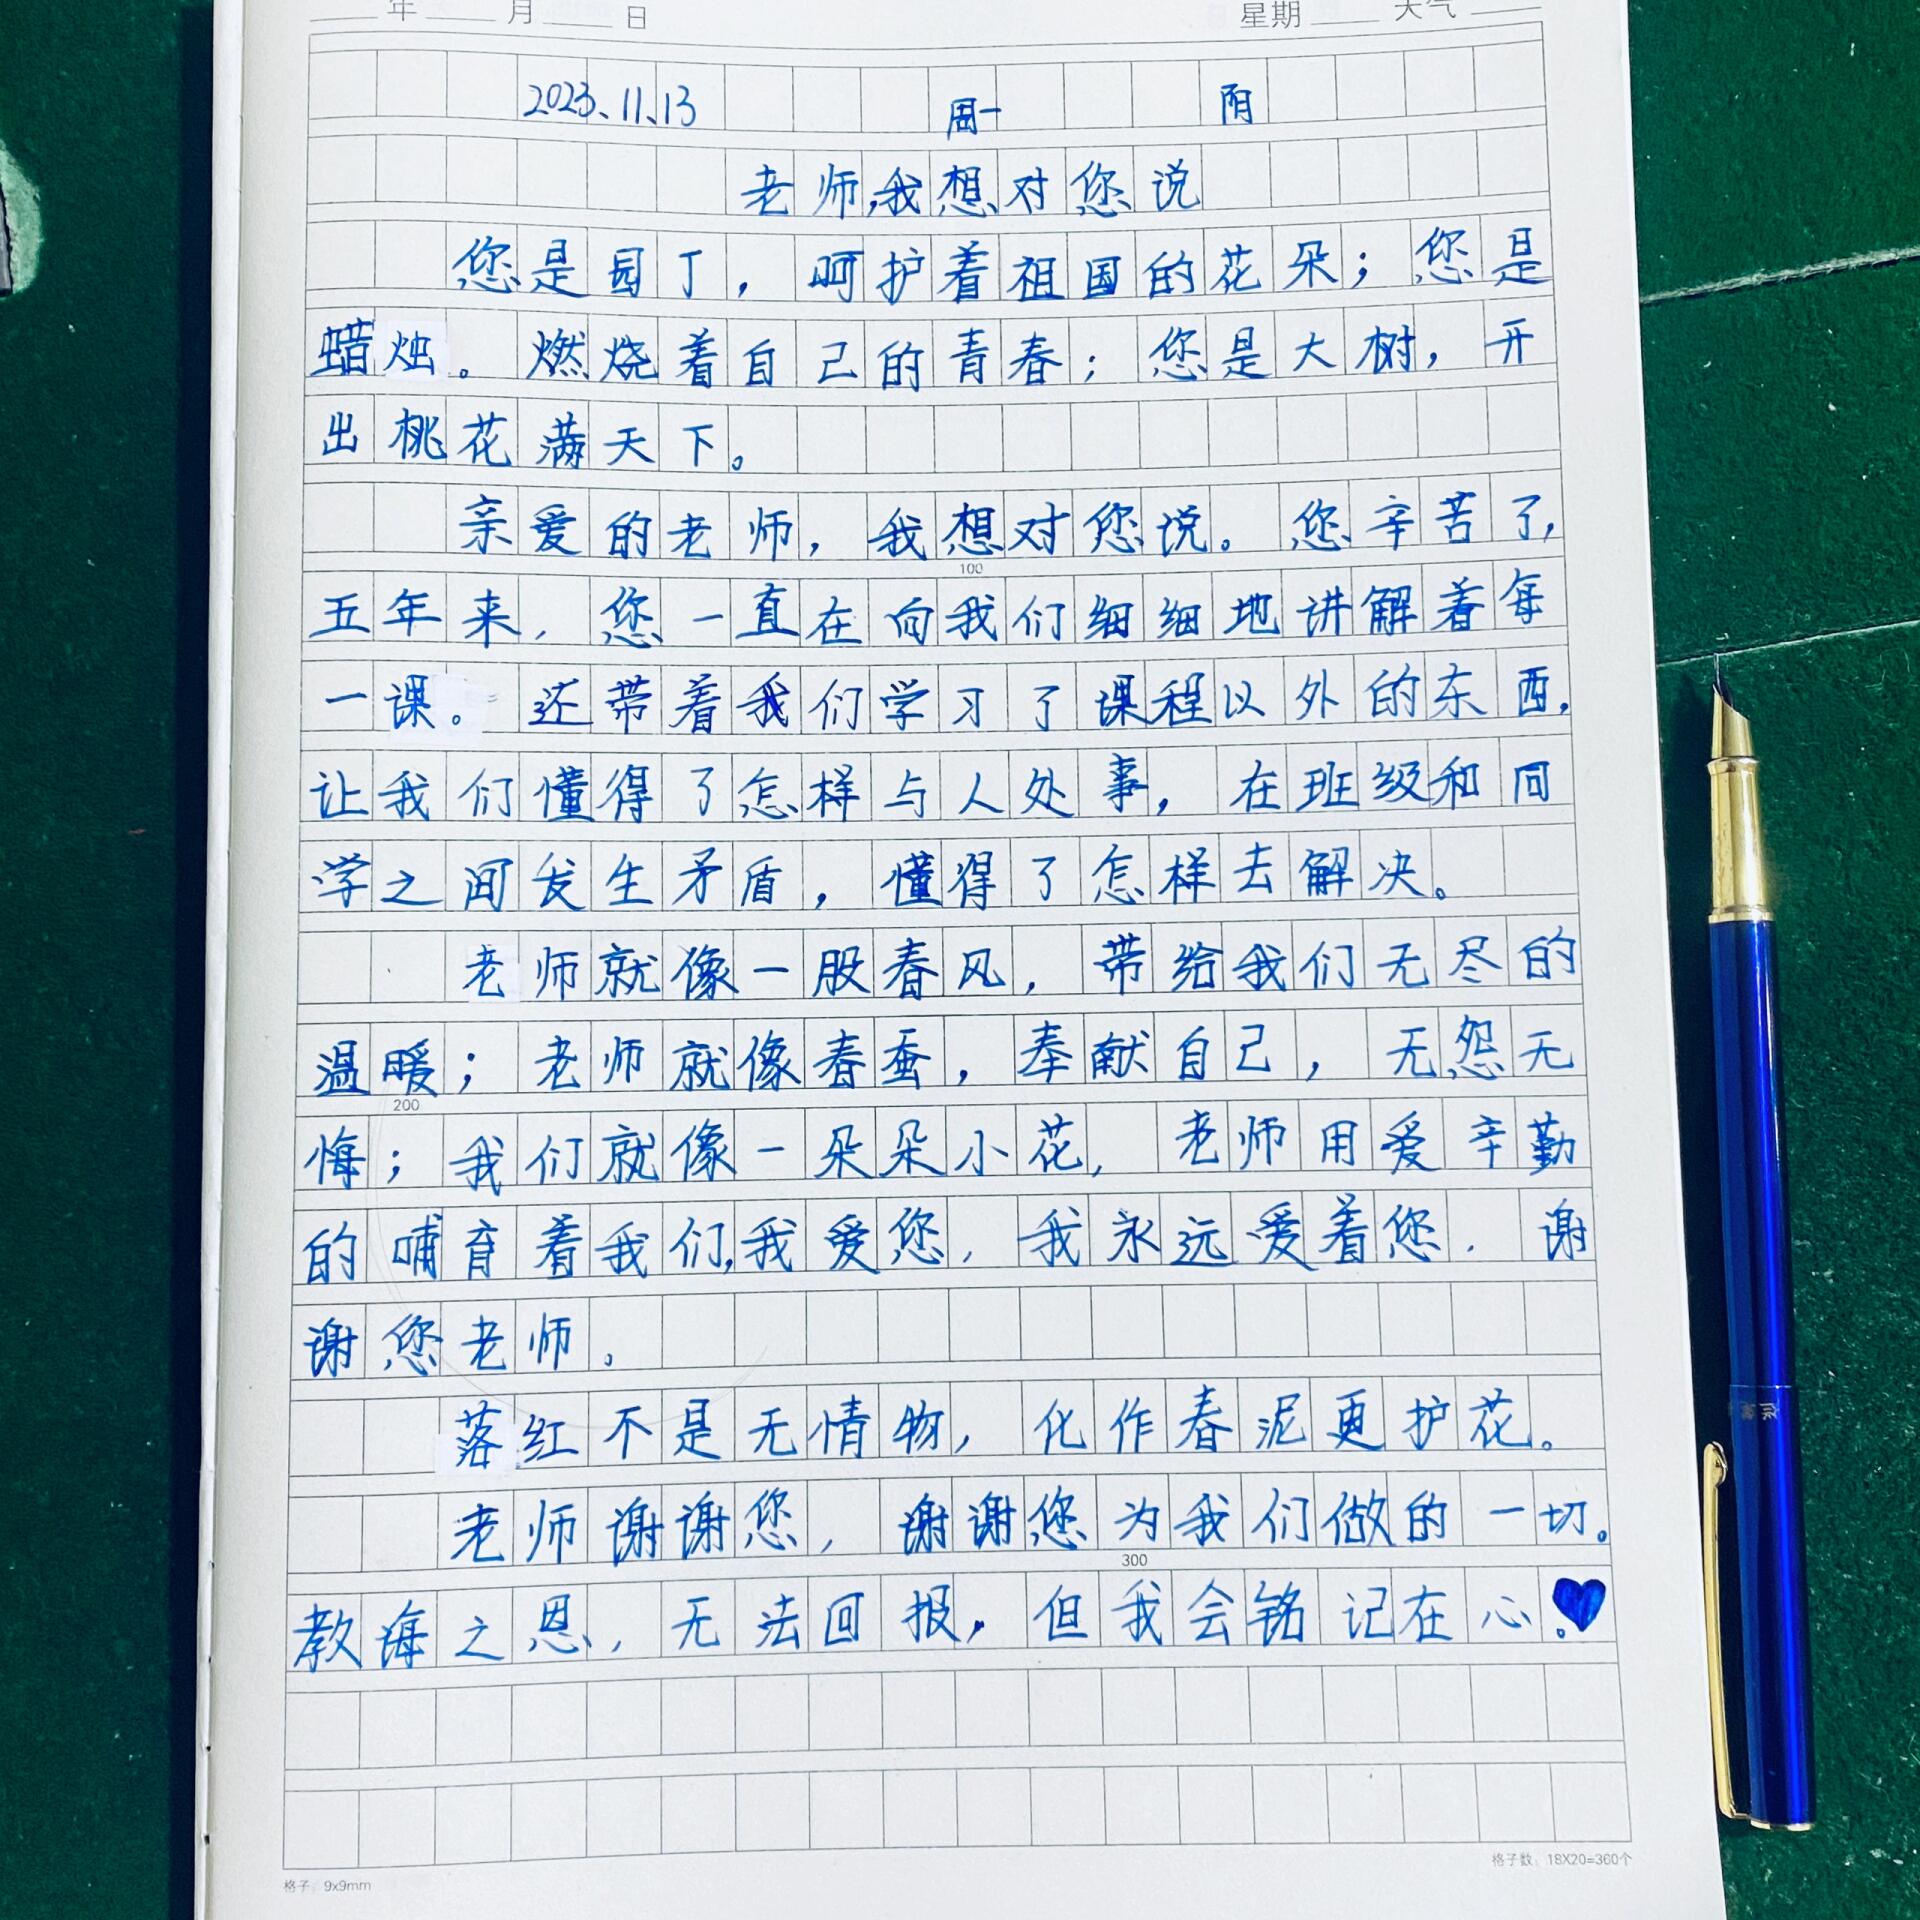 年 月 日 星期 天气
2023、11、13 周一 阴
老师,我想对您说
您是园丁，呵护着祖国的花朵；您是
蜡烛。燃烧着自己的青春；您是大树，开
出桃花满天下。
亲爱的老师，我想对您说。您辛苦了，
100
五年来，您一直在向我们细细地讲解着每
一课。还带着我们学习了课程以外的东西，
让我们懂得了怎样与人处事，在班级和同
学之间发生矛盾，懂得了怎样去解决。
老师就像一股春风，带给我们无尽的
温暖；老师就像春蚕，奉献自己，无怨无
200
悔；我们就像一朵朵小花，老师用爱辛勤
的哺育着我们,我爱您，我永远爱着您．谢
谢您老师。
落红不是无情物，化作春泥更护花。
老师谢谢您，谢谢您为我们做的一切。
300
教诲之恩，无法回报，但我会铭记在心。
格子：9x9mm 格子数：18X20=360个